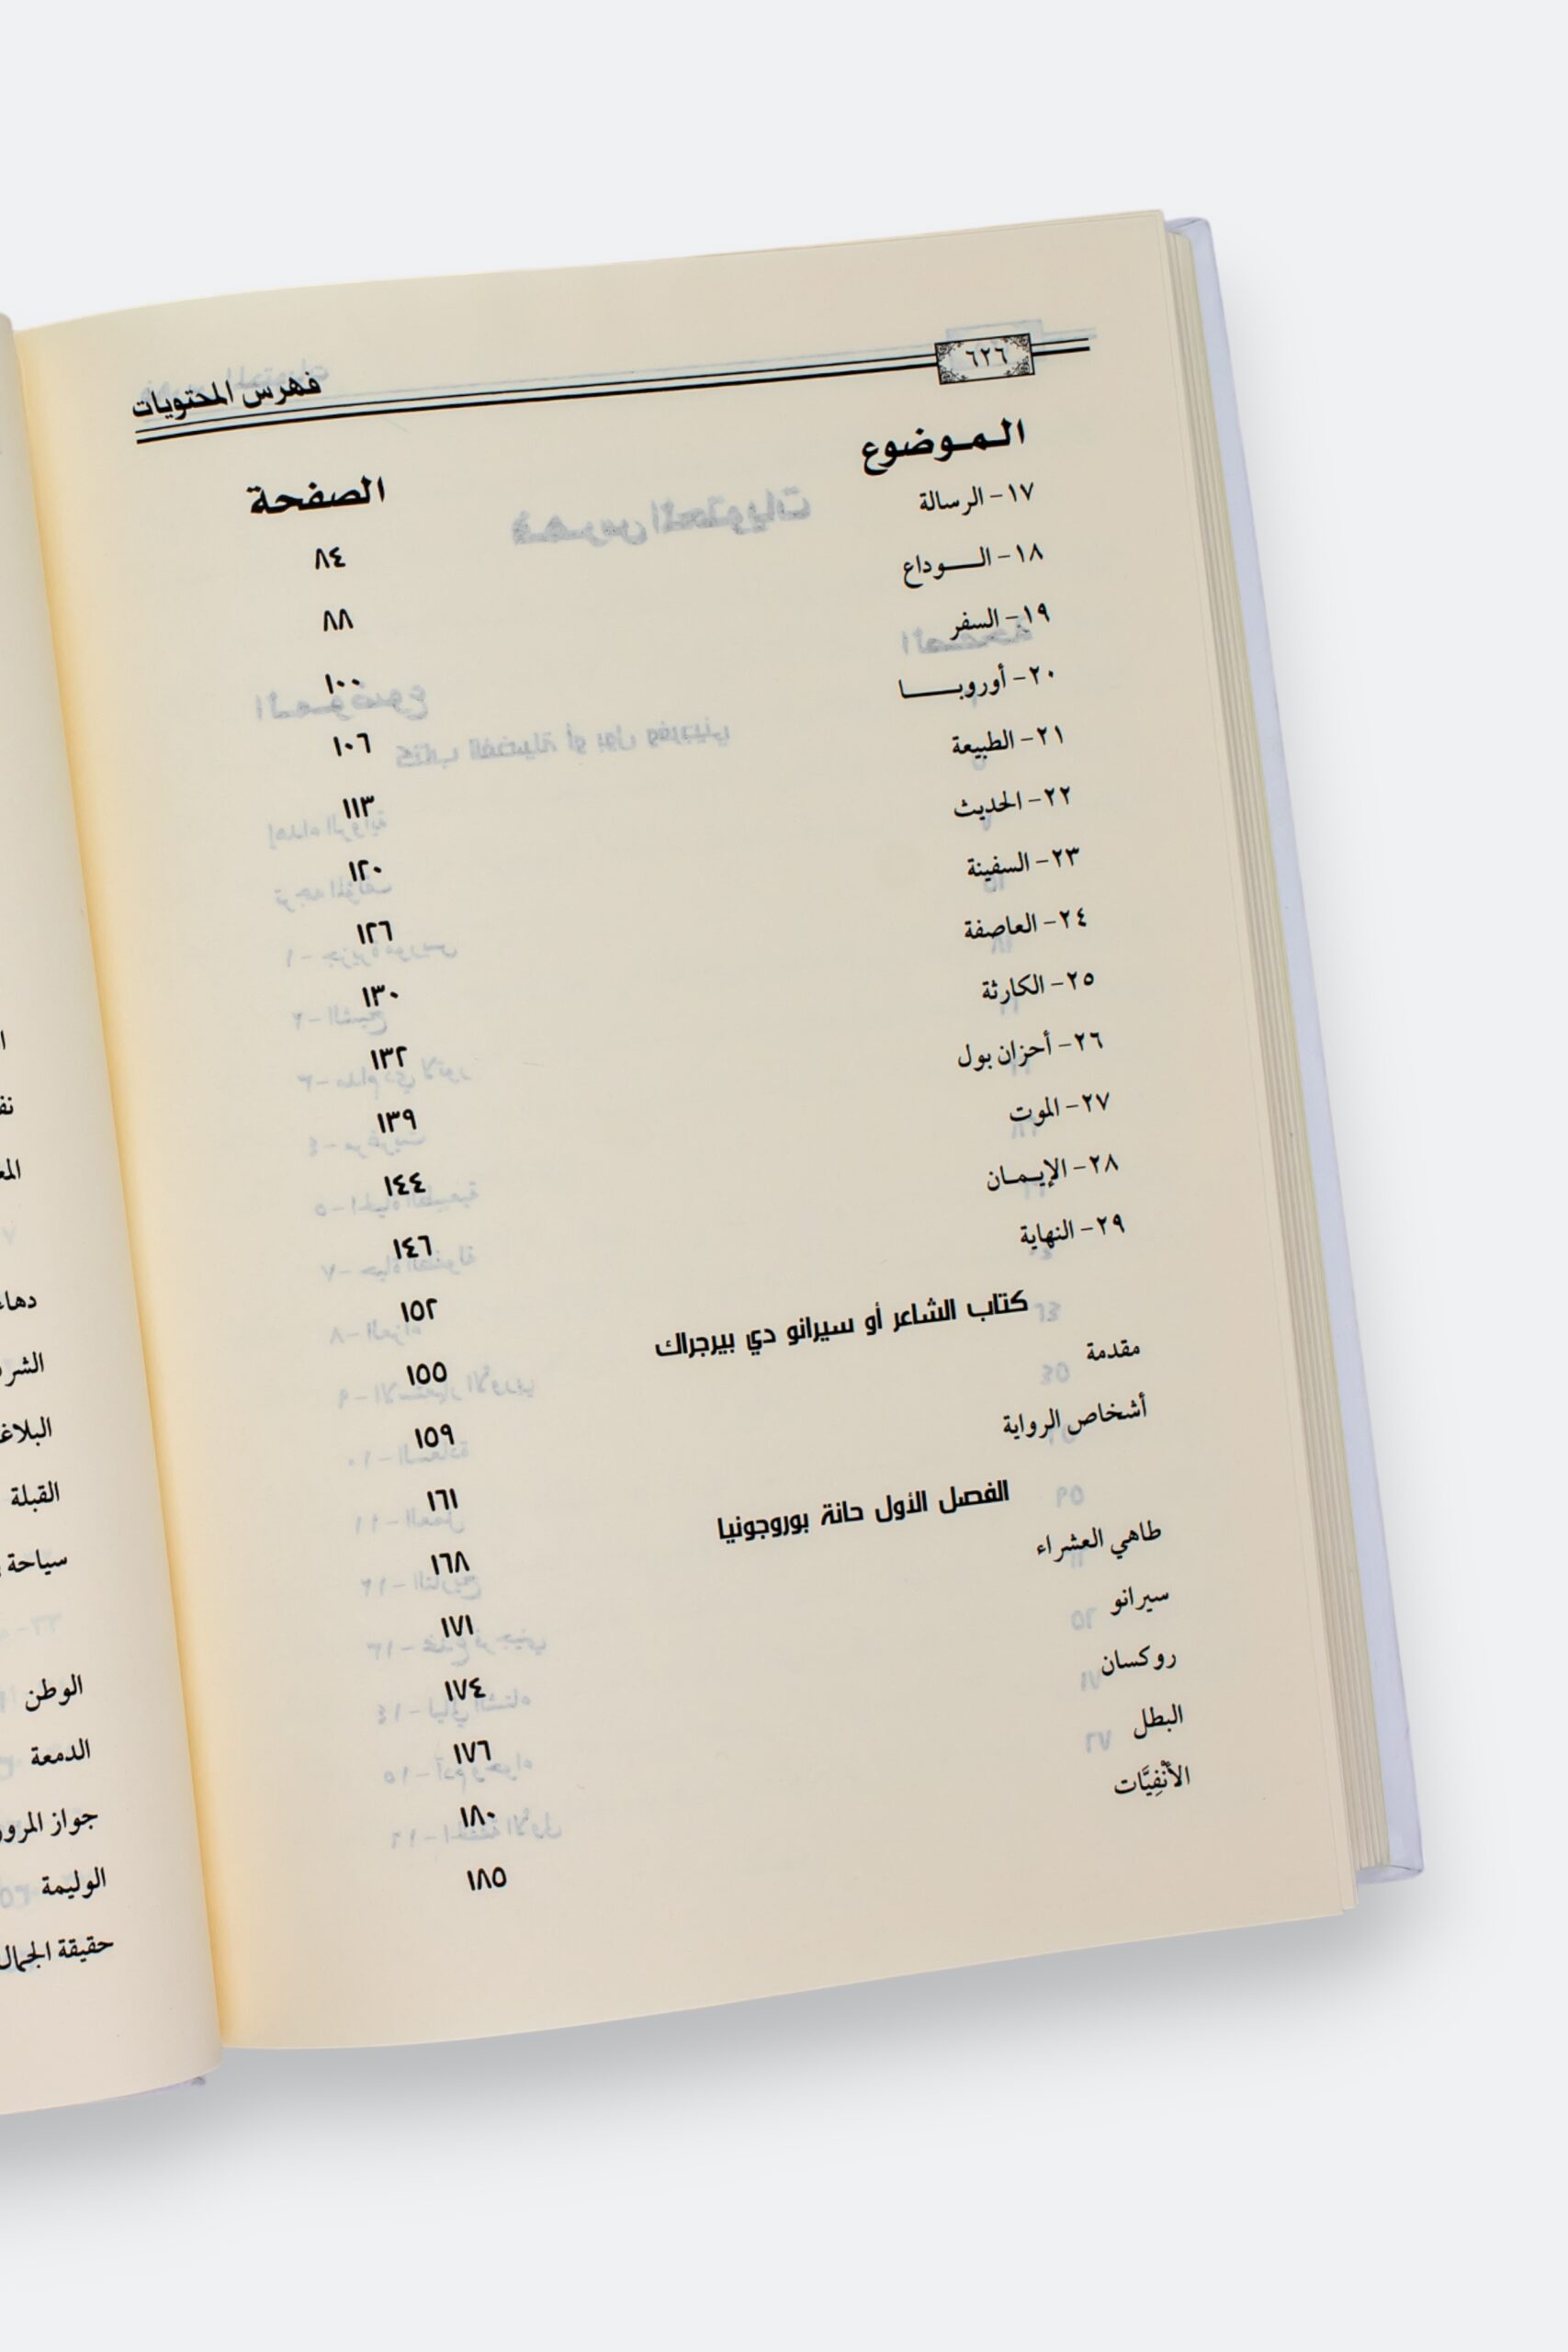 ٦٢٦ فهرس المحتويات
الموضوع الصفحة
١٧- الرسالة ٨٤
١٨- الـــوداع ٨٨
١٩- السفر ١٠٠
٢٠- أوروبــــا ١٠٦
٢١- الطبيعة ١١٣
٢٢- الحديث ١٢٠
٢٣- السفينة ١٢٦
٢٤- العاصفة ١٣٠
٢٥- الكارثة ١٣٢
٢٦- أحزان بول ١٣٩
٢٧- الموت ١٤٤
٢٨- الإيـمـان ١٤٦
٢٩- النهاية ١٥٢
كتاب الشاعر أو سيرانو دي بيرجراك ١٥٥
مقدمة ١٥٩
أشخاص الرواية ١٦١
الفصل الأول حانة بوروجونيا ١٦٨
طاهي العشراء ١٧١
سيرانو ١٧٤
روكسان ١٧٦
البطل ١٨٠
الأَنْفِيَّات ١٨٥
القبلة
سياحة
الوطن
الدمعة
جواز
الوليمة
حقيقة الجمال